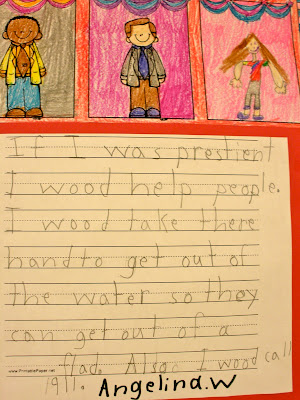 If I was prestient
I wood help people.
I wood take there
hand to get out of
the water so they
can get out of a
flad. Also I wood call
1911.
Angelina.W
www.PrintablePaper.net